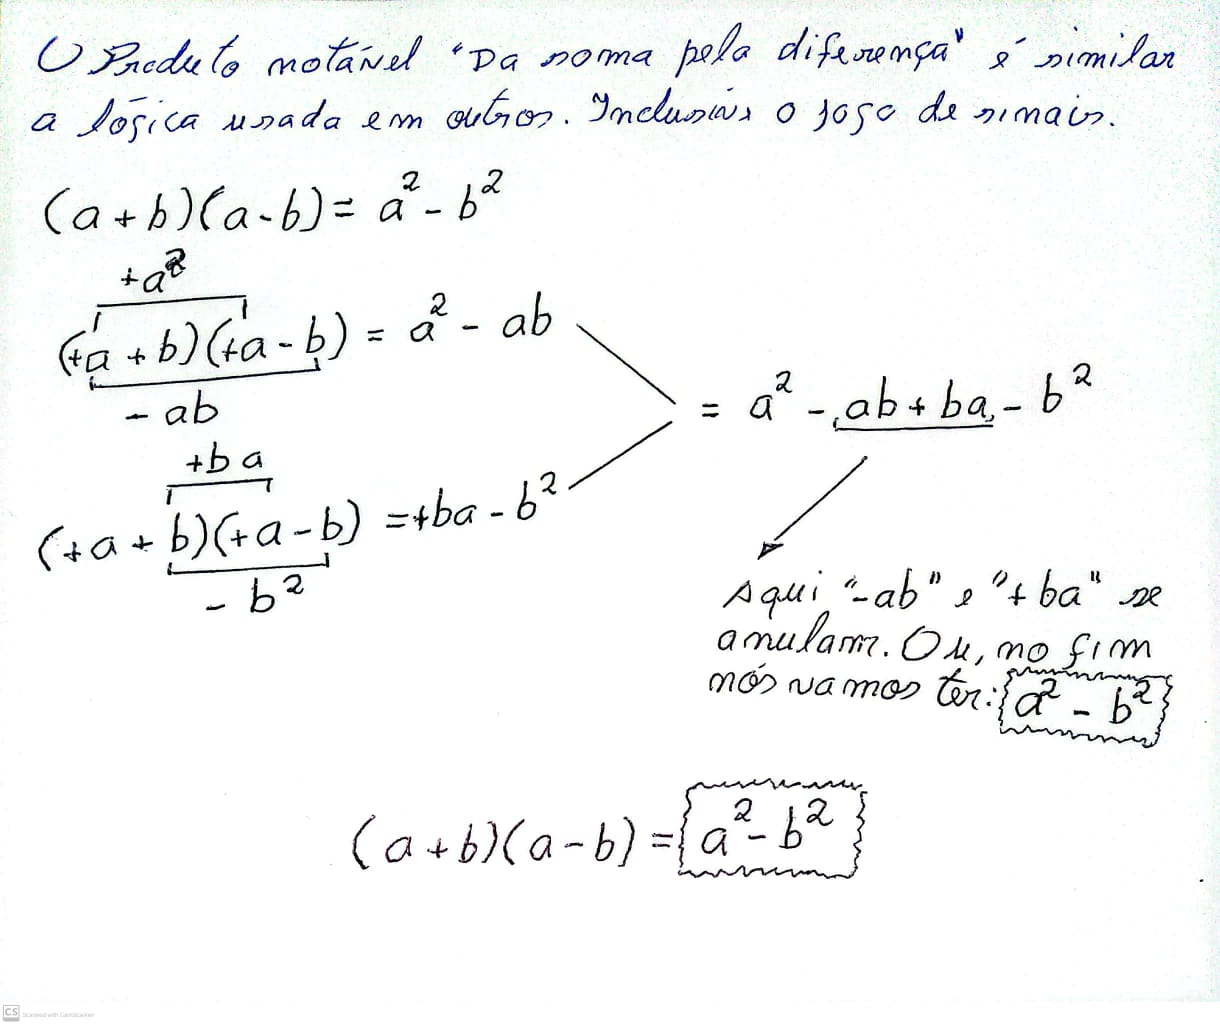 O Produto notável "Da soma pela diferença" é similar
a lógica usada em outros. Inclusive o jogo de sinais.
(a+b)(a-b)= a² - b²
+a²
(+a + b)(+a - b) = a² - ab
- ab
= a² - ab + ba - b²
+ba
(+a + b)(+a - b) =+ba - b²
- b²
Aqui "-ab" e "+ba" se
anulam. Ou, no fim
nós vamos ter: a² - b²
(a+b)(a-b) = a² - b²
CS Scanned with CamScanner